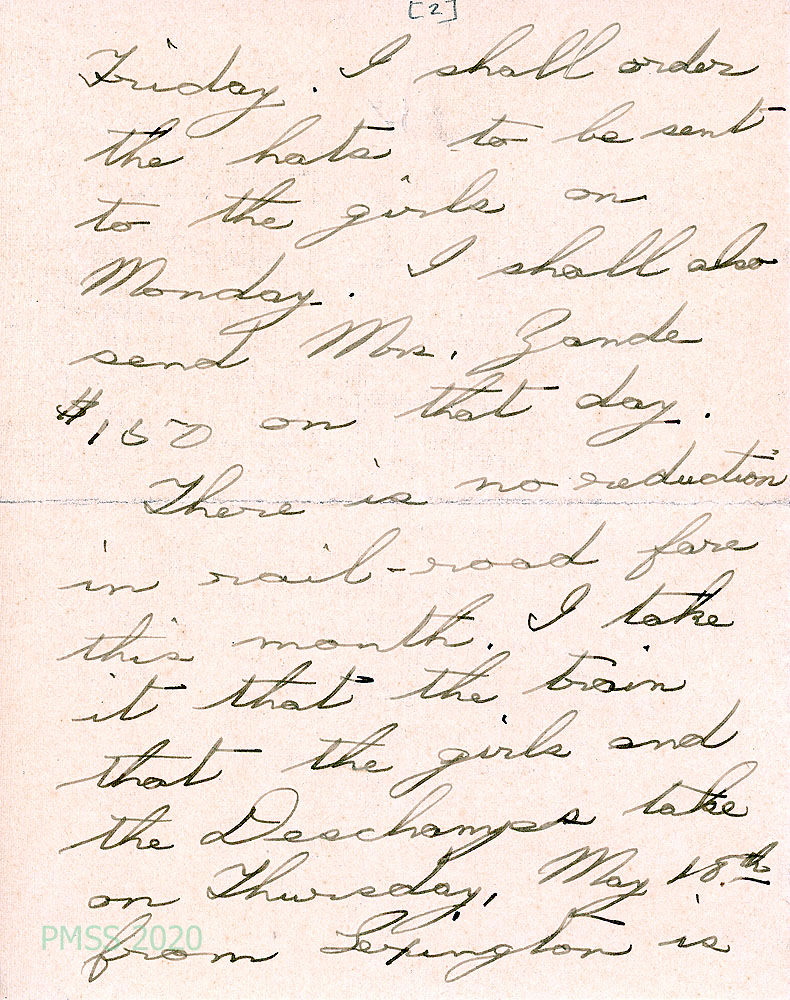 [2]
Friday. I shall order
the hats to be sent
to the girls on
Monday. I shall also
send Mrs. Zande
$150 on that day.
There is no reduction
in rail-road fare
this month. I take
it that the train
that the girls and
the Deschamps take
on Thursday, May 18th
from Lexington is
PMSS 2020